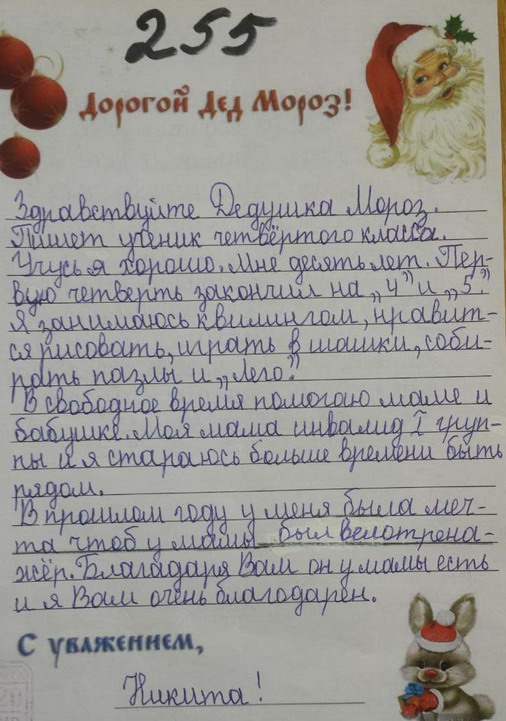 255
Дорогой Дед Мороз!
Здравствуйте Дедушка Мороз.
Пишет ученик четвёртого класса.
Учусь я хорошо. Мне десять лет. Пер-
вую четверть закончил на „4” и „5”.
Я занимаюсь квилингом, нравит-
ся рисовать, играть в шашки, соби-
рать пазлы и „Лего”.
В свободное время помогаю маме и
бабушке. Моя мама инвалид I груп-
пы и я стараюсь больше времени быть
рядом.
В прошлом году у меня была меч-
та чтоб у мамы был велотрена-
жёр. Благадаря Вам он у мамы есть
и я Вам очень благодарен.
С уважением,
Никита!